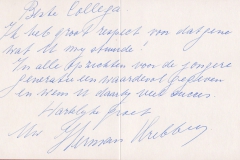 Beste Collega.
Ik heb groot respect voor datgene
wat U my stuurde!
In alle opzichten voor de jongere
generatie een waardevol gegeven
en wens U daarby veel succes.
Hartelyke groet
Herman